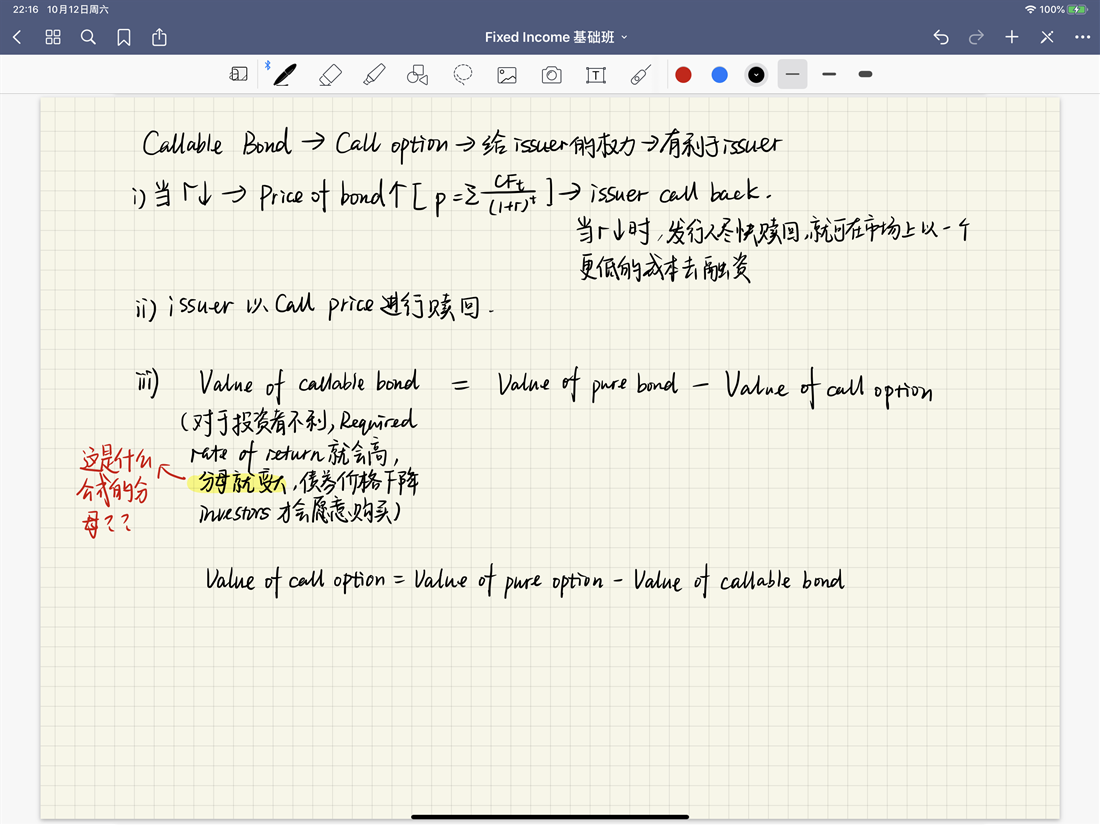 22:16 10月12日周六
100%
Fixed Income 基础班
Callable Bond → Call option → 给issuer的权力 → 有利于issuer
i) 当r↓ → Price of bond↑ [ p = Σ CFt/(1+r)^t ] → issuer call back.
当r↓时,发行人尽快赎回,就可在市场上以一个
更低的成本去融资
ii) issuer 以 Call price 进行赎回.
iii) Value of callable bond = Value of pure bond - Value of call option
(对于投资者不利, Required
rate of return 就会高,
分母就变大,债券价格下降
investors 才会愿意购买)
这是什么
公式的分
母??
Value of call option = Value of pure option - Value of callable bond